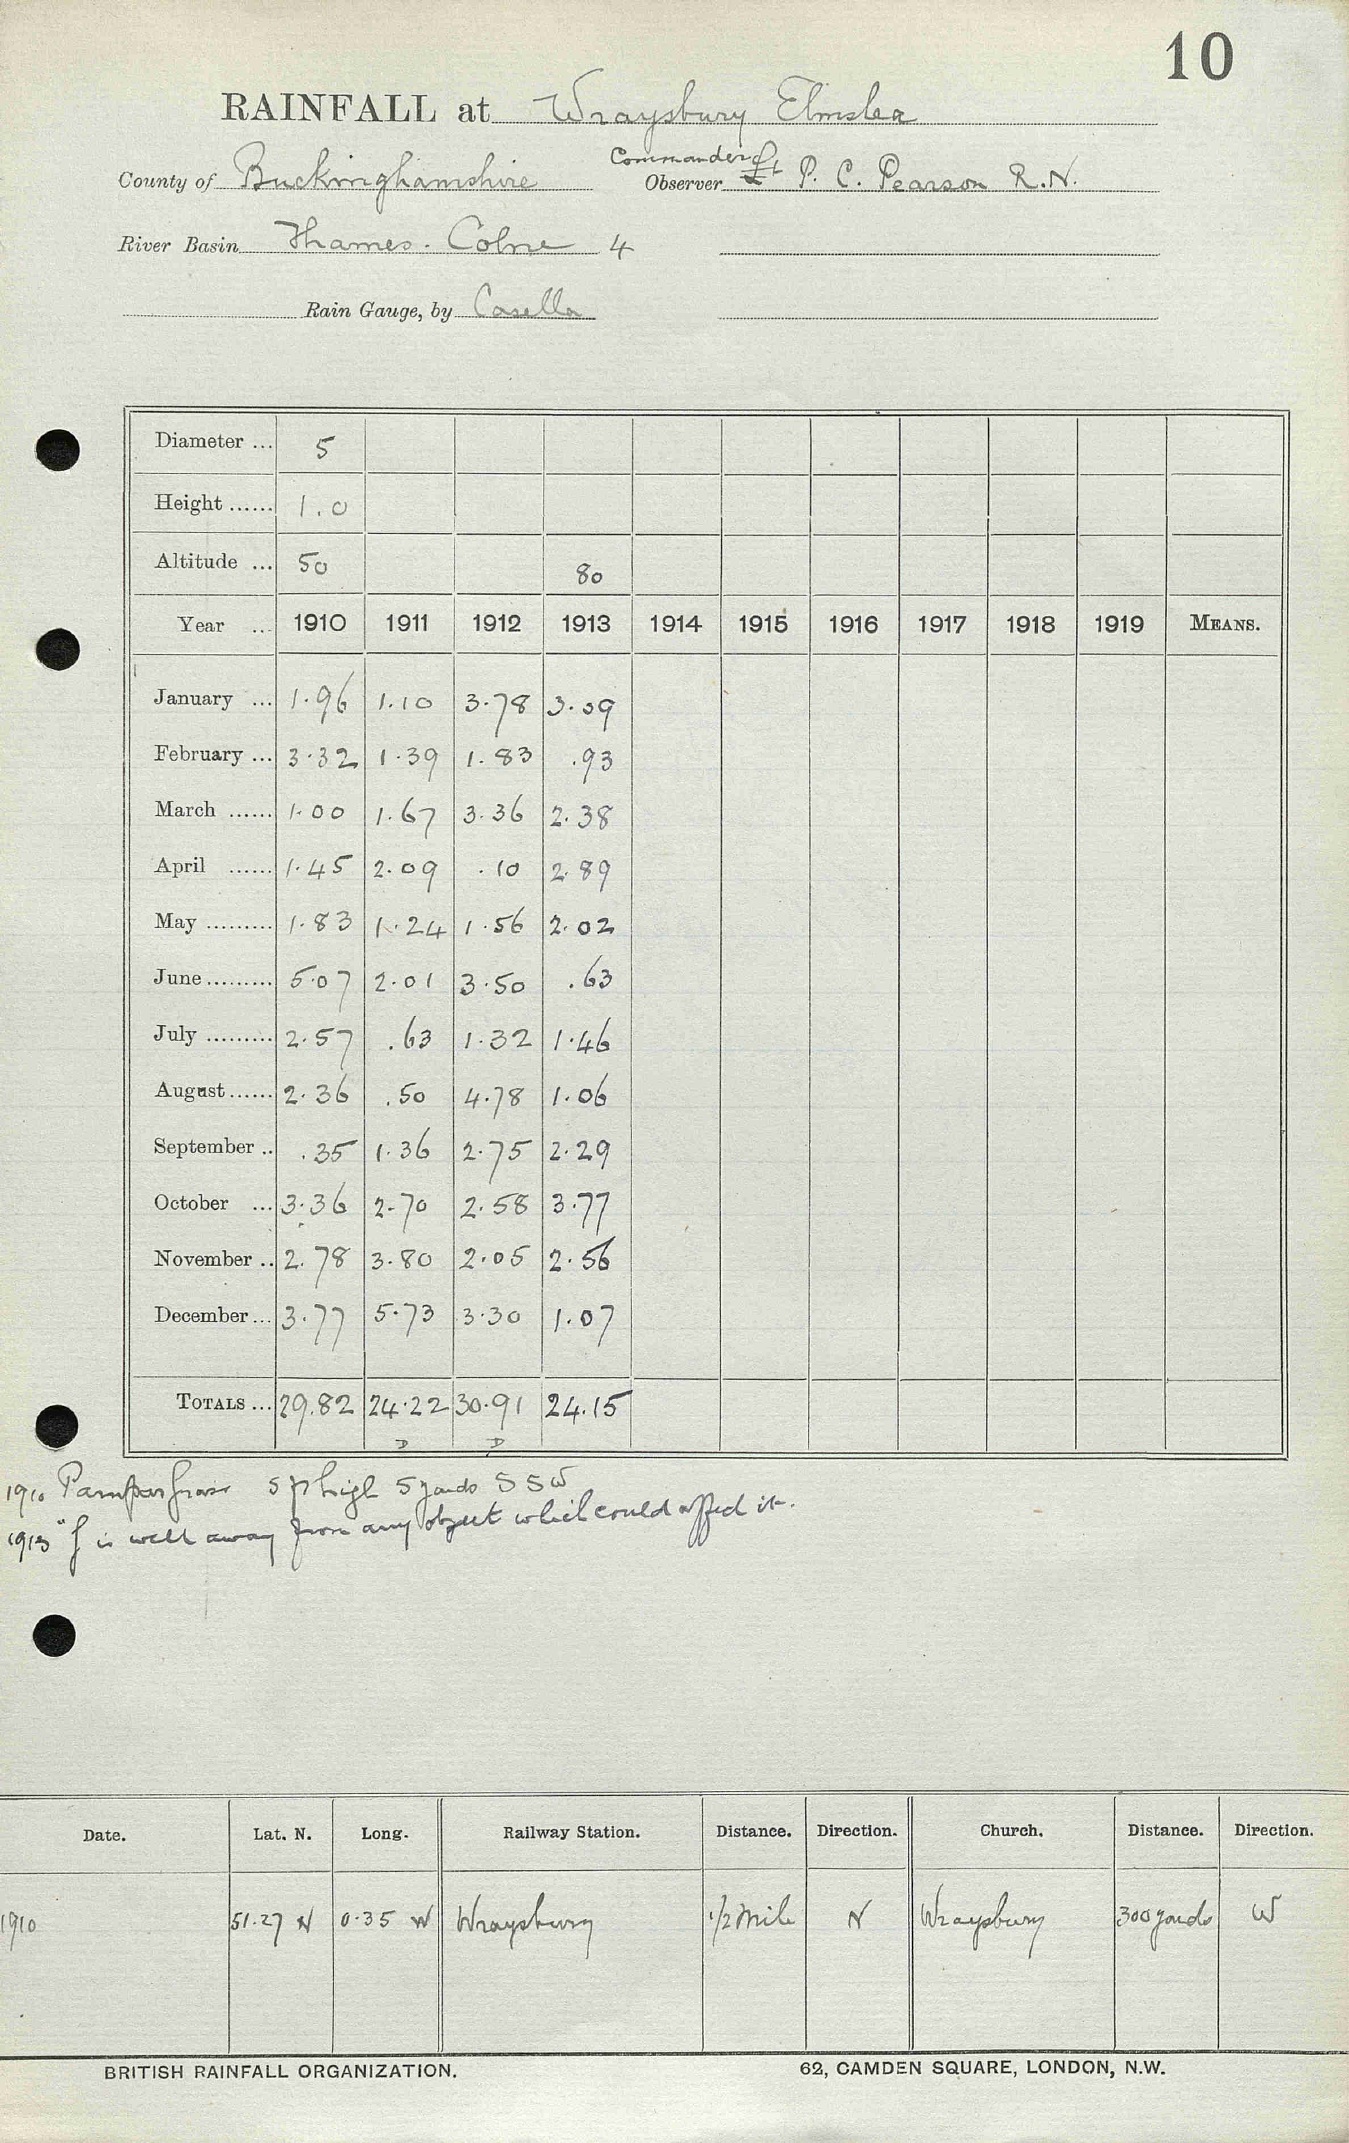 10
RAINFALL at Wraysbury Elmslea
County of Buckinghamshire Commander Observer Lt P. C. Pearson R.N.
River Basin Thames. Colne 4
Rain Gauge, by Casella
Diameter ... 5
Height ...... 1.0
Altitude ... 50 80
Year ... 1910 1911 1912 1913 1914 1915 1916 1917 1918 1919 MEANS.
January ... 1.96 1.10 3.78 3.09
February ... 3.32 1.39 1.83 .93
March ...... 1.00 1.67 3.36 2.38
April ...... 1.45 2.09 .10 2.89
May ......... 1.83 1.24 1.56 2.02
June ......... 5.07 2.01 3.50 .63
July ......... 2.57 .63 1.32 1.46
August ...... 2.36 .50 4.78 1.06
September .. .35 1.36 2.75 2.29
October ... 3.36 2.70 2.58 3.77
November .. 2.78 3.80 2.05 2.56
December ... 3.77 5.73 3.30 1.07
TOTALS ... 29.82 24.22 30.91 24.15
D D
1910 Pampas grass 5 ft high 5 yards S S W
1913 is well away from any object which could affect it.
Date. Lat. N. Long. Railway Station. Distance. Direction. Church. Distance. Direction.
1910 51.27 N 0.35 W Wraysbury 1/2 Mile N Wraysbury 300 yards W
BRITISH RAINFALL ORGANIZATION. 62, CAMDEN SQUARE, LONDON, N.W.